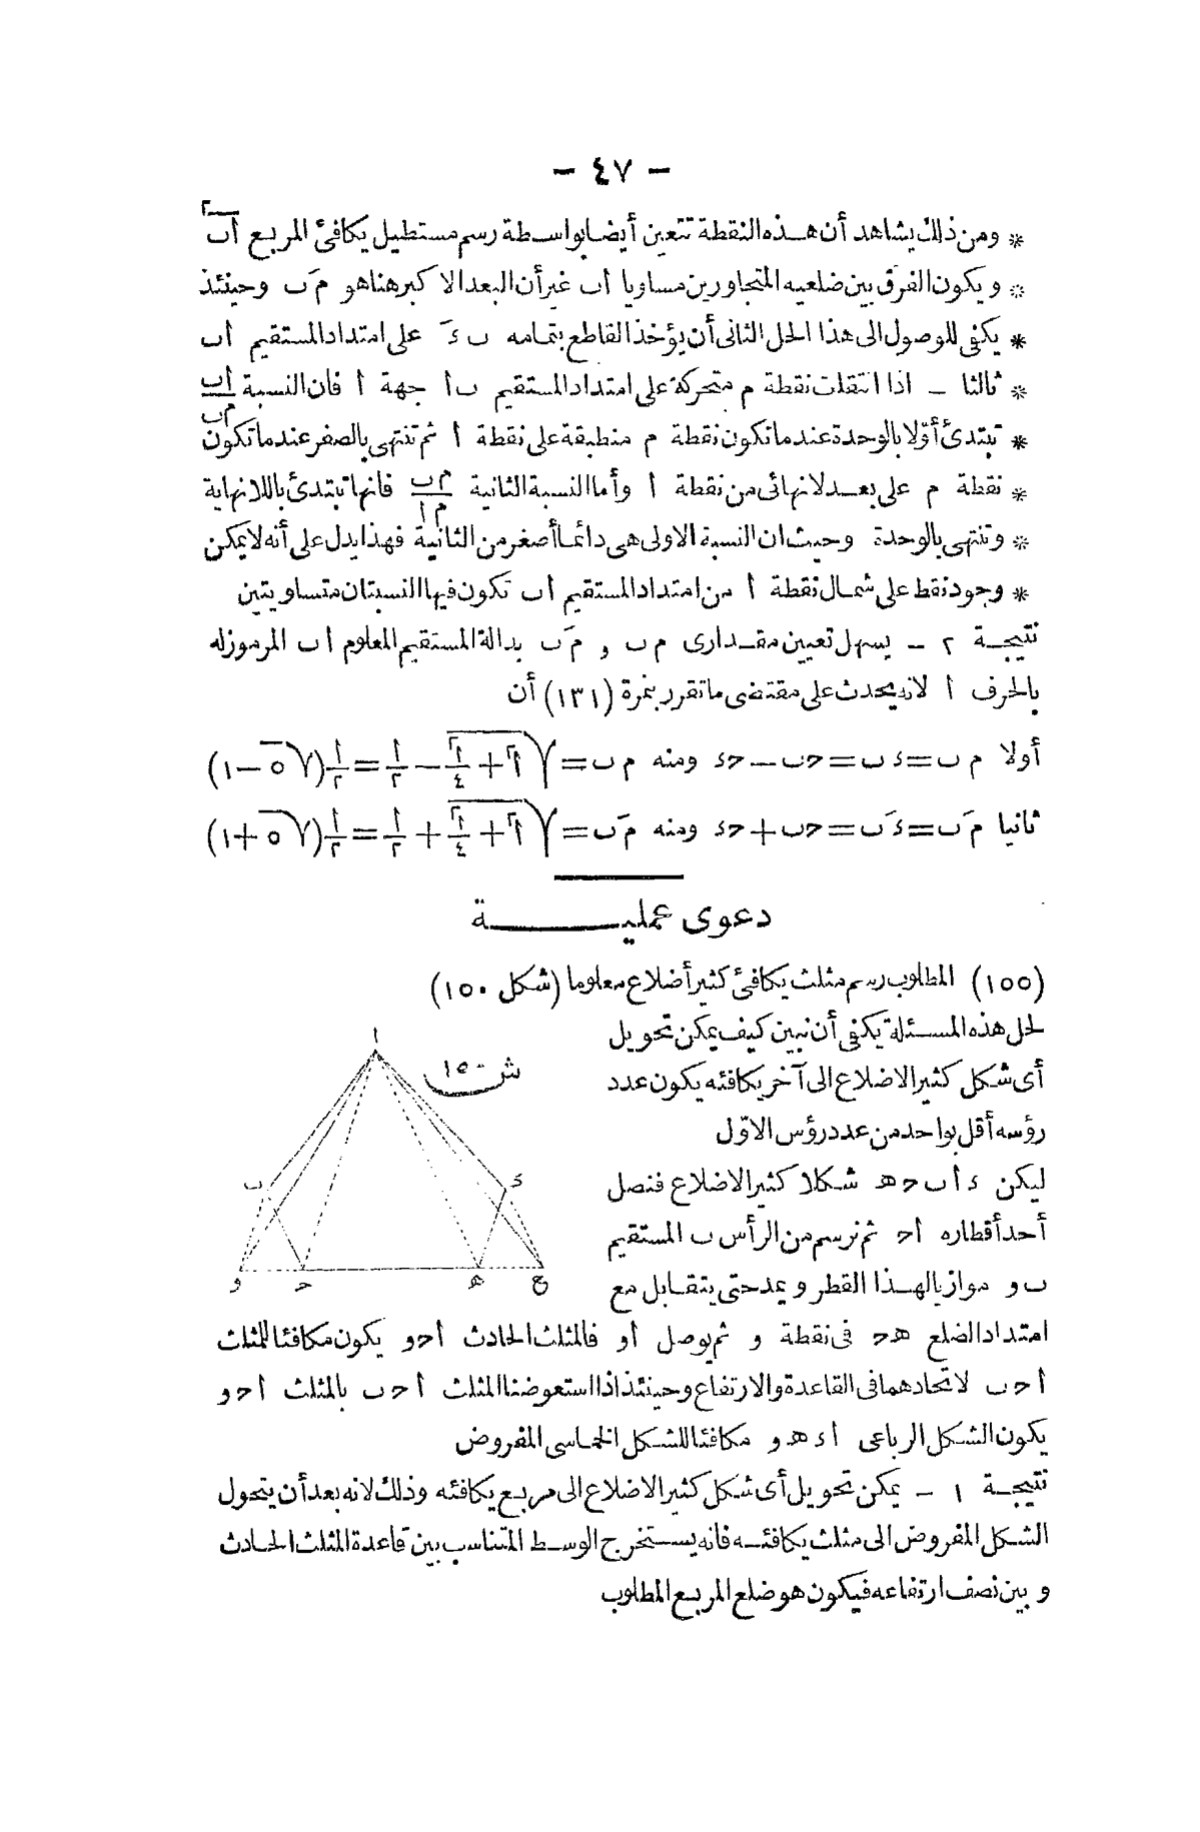 — ٤٧ —
* ومن ذلك يشاهد أن هذه النقطة تتعين أيضا بواسطة رسم مستطيل يكافئ المربع ا ب٢
* ويكون الفرق بين ضلعيه المتجاورين مساويا ا ب غير أن البعد الاكبر هنا هو مَ ب وحينئذ
* يكفى للوصول الى هذا الحل الثانى أن يؤخذ القاطع بتمامه ب ءَ على امتداد المستقيم ا ب
* ثالثا – اذا انتقلت نقطة م متحركة على امتداد المستقيم ب ا جهة ا فان النسبة ا ب / م ب
* تبتدئ أوّلا بالوحدة عند ما تكون نقطة م منطبقة على نقطة ا ثم تنتهى بالصفر عند ما تكون
* نقطة م على بعد لانهائى من نقطة ا وأما النسبة الثانية م ب / م ا فانها تبتدئ باللانهاية
* وتنتهى بالوحدة وحيث ان النسبة الاولى هى دائما أصغر من الثانية فهذا يدل على أنه لا يمكن
* وجود نقط على شمال نقطة ا من امتداد المستقيم ا ب تكون فيها النسبتان متساويتين
نتيجة ٢ – يسهل تعيين مقدارى م ب و مَ ب بدالة المستقيم المعلوم ا ب المرموز له
بالحرف ا لانه يحدث على مقتضى ما تقرر بنمرة (١٣١) أن
أولا م ب = ء ب = حـ ب − حـ ء ومنه م ب = √(ا٢ + ا٢/٤) − ا/٢ = ا/٢ (√٥ − ١)
ثانيا مَ ب = ءَ ب = حـ ب + حـ ء ومنه مَ ب = √(ا٢ + ا٢/٤) + ا/٢ = ا/٢ (√٥ + ١)
دعوى عمليـــة
(١٥٥) المطلوب رسم مثلث يكافئ كثير أضلاع معلوما (شكل ١٥٠)
لحل هذه المسئلة يكفى أن نبين كيف يمكن تحويل
أى شكل كثير الاضلاع الى آخر يكافئه يكون عدد
رؤسه أقل بواحد من عدد رؤس الاوّل
ليكن ء ا ب حـ هـ شكلا كثير الاضلاع فنصل
أحد أقطاره ا حـ ثم نرسم من الرأس ب المستقيم
ب و موازيا لهذا القطر ويمد حتى يتقابل مع
امتداد الضلع هـ حـ فى نقطة و ثم يوصل ا و فالمثلث الحادث ا حـ و يكون مكافئا للمثلث
ا حـ ب لاتحادهما فى القاعدة والارتفاع وحينئذ اذا استعوضنا المثلث ا حـ ب بالمثلث ا حـ و
يكون الشكل الرباعى ا ء هـ و مكافئا للشكل الخماسى المفروض
نتيجة ١ – يمكن تحويل أى شكل كثير الاضلاع الى مربع يكافئه وذلك لانه بعد أن يتحول
الشكل المفروض الى مثلث يكافئه فانه يستخرج الوسط المتناسب بين قاعدة المثلث الحادث
وبين نصف ارتفاعه فيكون هو ضلع المربع المطلوب
ش ١٥٠
ا
ب
ء
و
حـ
هـ
ع